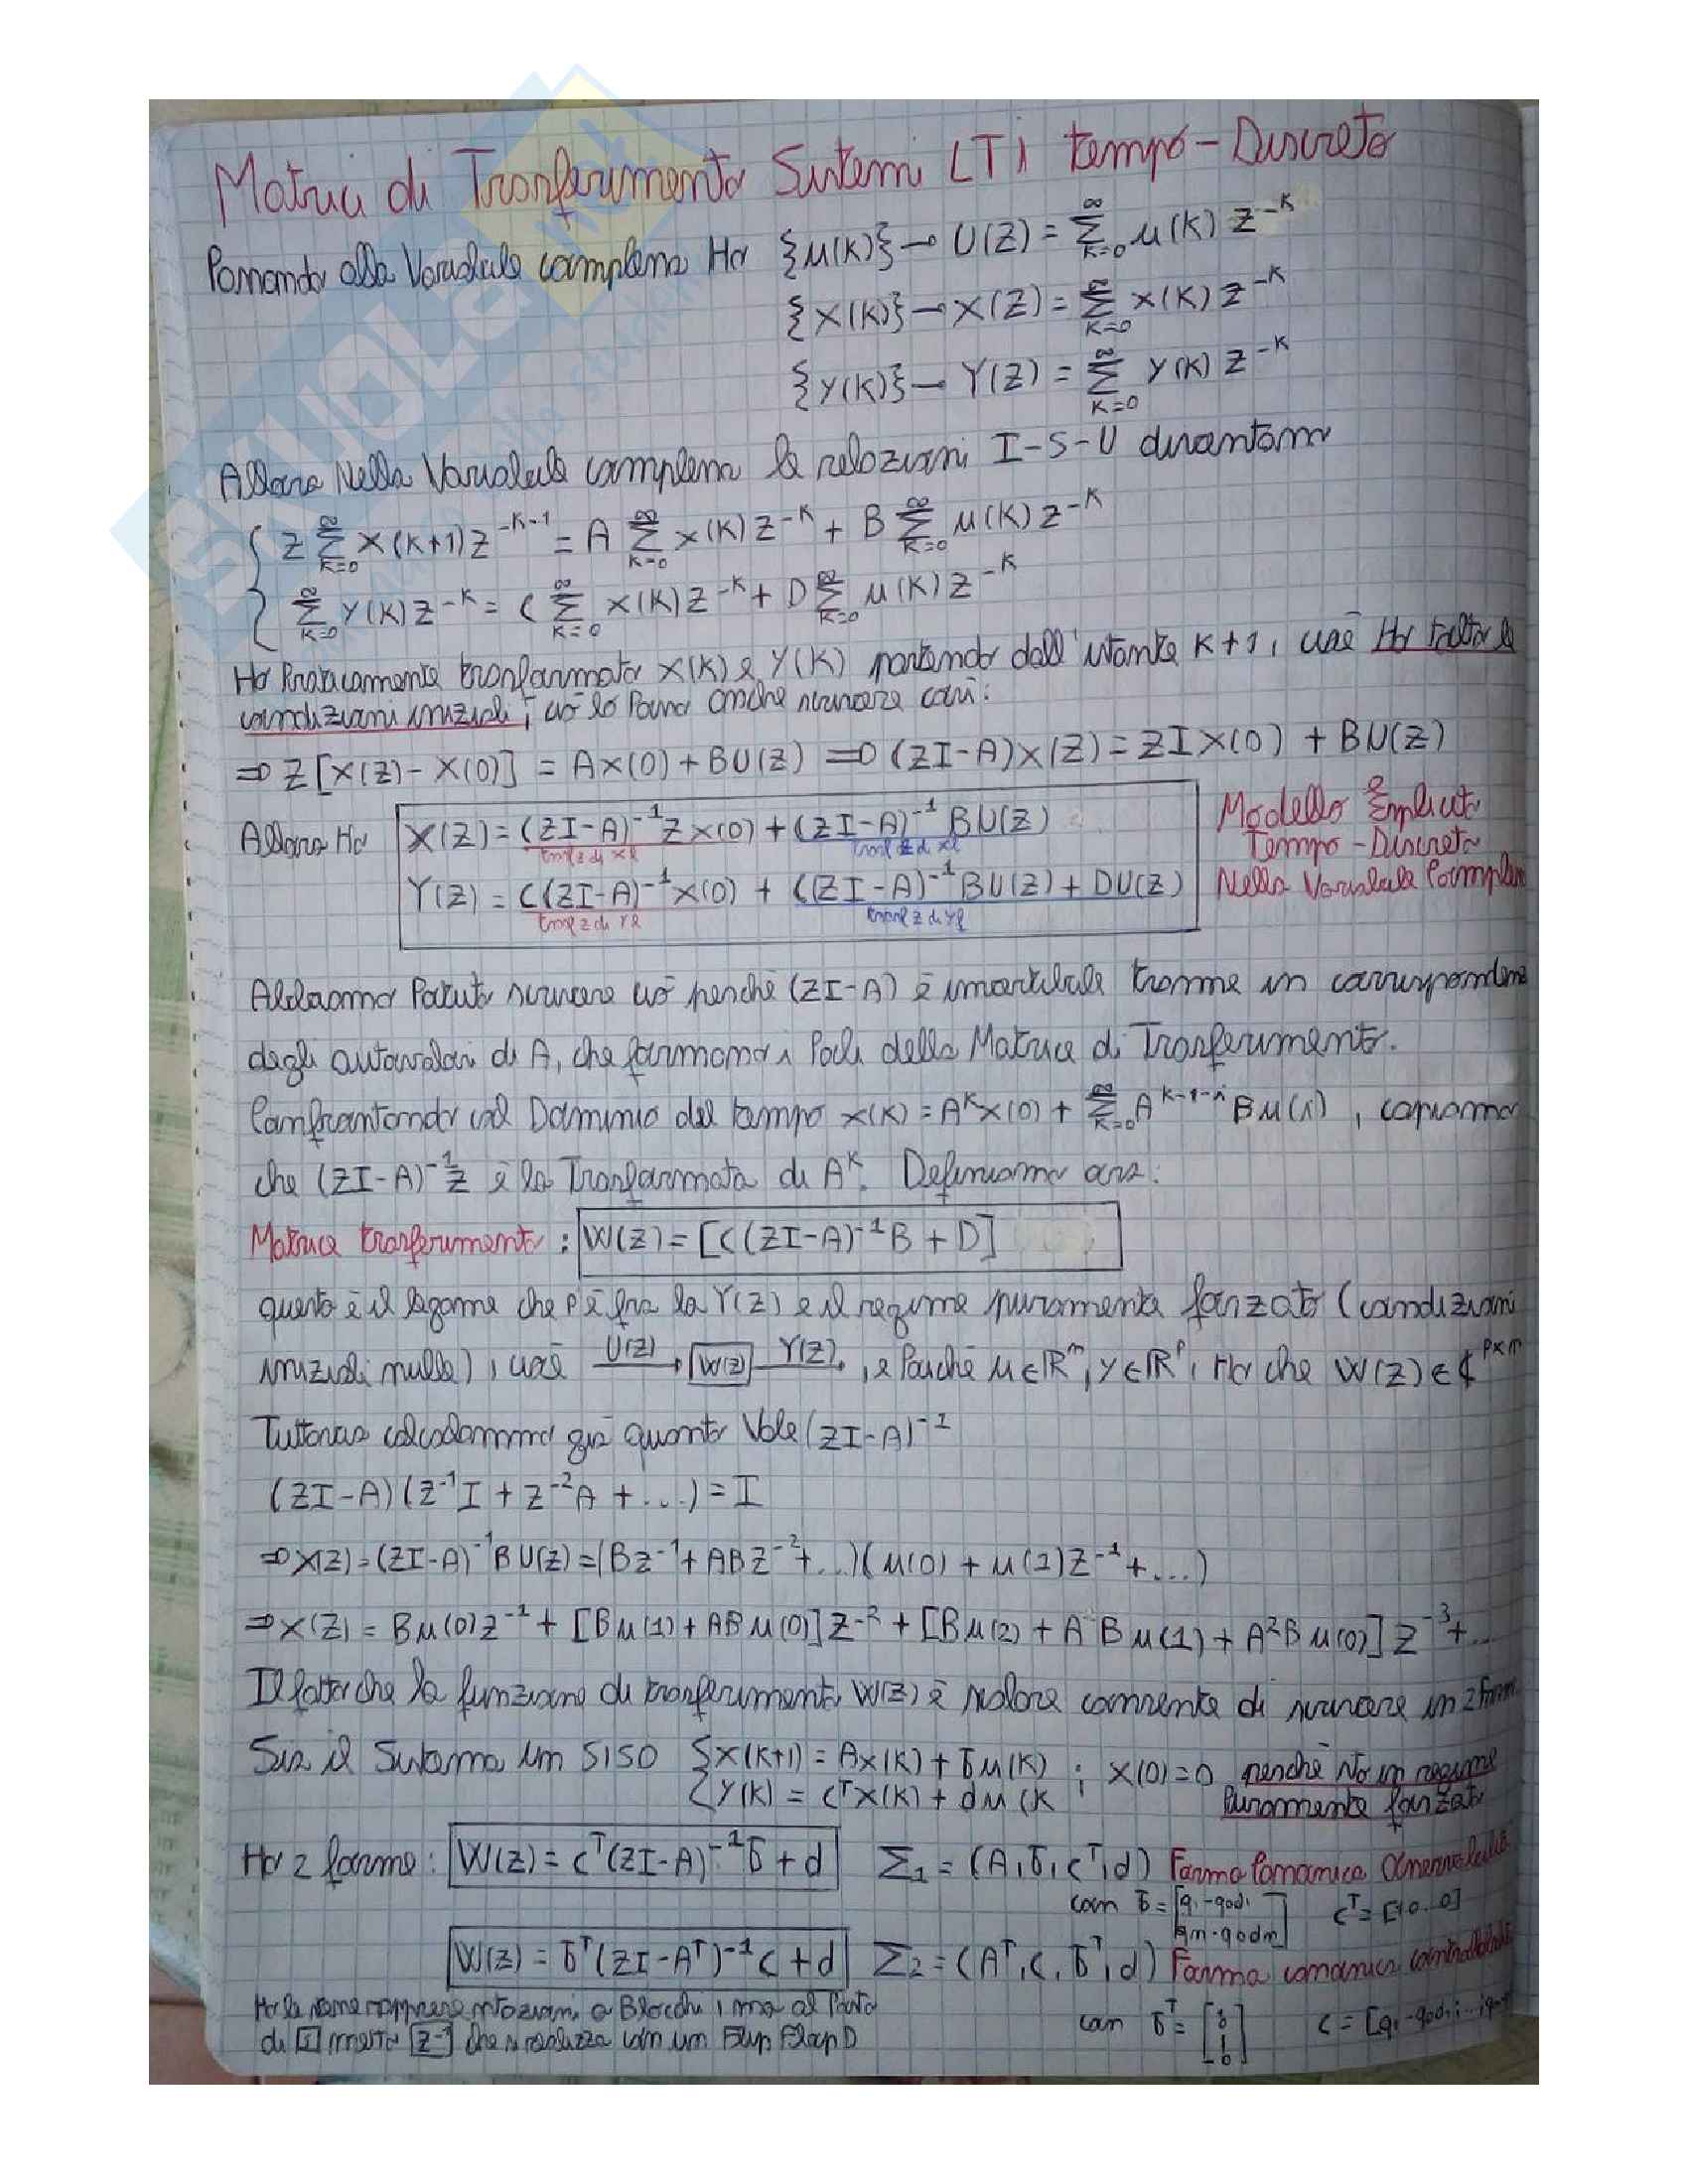 Matrici di Trasferimento Sistemi LTI tempo-Discreto
Passando alla Variabile complessa Ho {u(k)} → U(z) = ∑_{k=0}^{∞} u(k) z^{-k}
{x(k)} → X(z) = ∑_{k=0}^{∞} x(k) z^{-k}
{y(k)} → Y(z) = ∑_{k=0}^{∞} y(k) z^{-k}
Allora Nella Variabile complessa le relazioni I-S-U diventano
z ∑_{k=0}^{∞} x(k+1) z^{-k-1} = A ∑_{k=0}^{∞} x(k) z^{-k} + B ∑_{k=0}^{∞} u(k) z^{-k}
∑_{k=0}^{∞} y(k) z^{-k} = C ∑_{k=0}^{∞} x(k) z^{-k} + D ∑_{k=0}^{∞} u(k) z^{-k}
Ho Praticamente trasformato x(k) e y(k) partendo dall'istante k+1, cioè Ho tolto le
condizioni iniziali, ciò lo Posso anche scrivere così:
⇒ z[x(z) - x(0)] = Ax(0) + BU(z) ⇒ (zI-A)x(z) = zIx(0) + BU(z)
Allora Ho X(z) = (zI-A)^{-1} z x(0) + (zI-A)^{-1} BU(z)
trasf z di xl trasf z di xf
Y(z) = C(zI-A)^{-1} x(0) + C(zI-A)^{-1} BU(z) + DU(z)
trasf z di yl trasf z di yf
Modello Esplicito
Tempo-Discreto
Nella Variabile Complessa
Abbiamo Potuto scrivere ciò perché (zI-A) è invertibile tranne in corrispondenza
degli autovalori di A, che formano i Poli della Matrice di Trasferimento.
Confrontando col Dominio del tempo x(k) = A^k x(0) + ∑_{k=0}^{∞} A^{k-1-i} Bu(i), capiamo
che (zI-A)^{-1} z è la Trasformata di A^k. Definiamo ora:
Matrice trasferimento: W(z) = [C(zI-A)^{-1}B + D]
questo è il legame che c'è fra la Y(z) e il regime puramente forzato (condizioni
iniziali nulle), cioè U(z) → W(z) Y(z) → , e Poiché u∈ℝ^m, y∈ℝ^p, Ho che W(z) ∈ ℂ^{p×m}
Tuttavia calcoliamo già quanto Vale (zI-A)^{-1}
(zI-A)(z^{-1}I + z^{-2}A + ...) = I
⇒ x(z) = (zI-A)^{-1}BU(z) = (Bz^{-1} + ABz^{-2} + ...)(u(0) + u(1)z^{-1} + ...)
⇒ x(z) = Bu(0)z^{-1} + [Bu(1) + ABu(0)]z^{-2} + [Bu(2) + ABu(1) + A²Bu(0)]z^{-3} + ...
Il fatto che la funzione di trasferimento W(z) è scalare consente di scrivere in 2 forme
Sia il Sistema un SISO { x(k+1) = Ax(k) + bu(k) ; x(0)=0 perché No in regime
y(k) = c^T x(k) + du(k Puramente forzato
Ho 2 forme: W(z) = c^T(zI-A)^{-1}b + d Σ1 = (A, b, c^T, d) Forma Canonica Osservabile
con b = [q1-q0d1 c^T = [10..0]
qn-q0dn]
W(z) = b^T(zI-A^T)^{-1}c + d Σ2 = (A^T, c, b^T, d) Forma canonica controllabile
Ho le stesse rappresentazioni a Blocchi, ma al Posto con b^T = c = [q1-q0d1
di ∫ metto z^{-1} che si realizza con un Flip Flop D